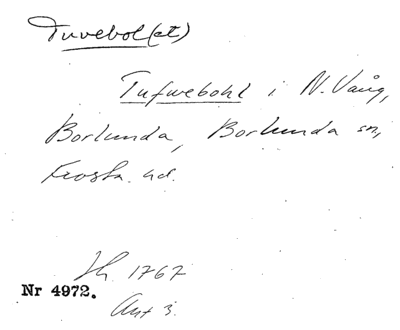 Tuvebol(et)
Tufwebohl i N. Vång,
Borlunda, Borlunda sn,
Frosta hd.
Sh. 1767
Nr 4972.
Akt 3.